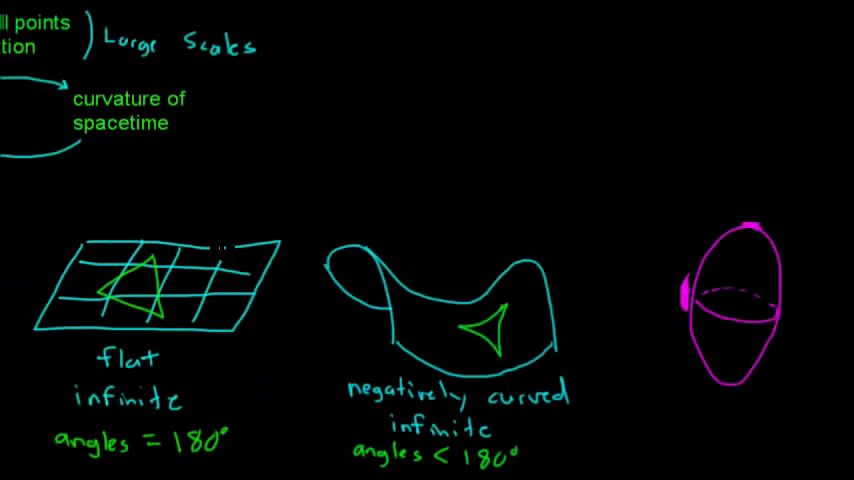 ll points
tion
Large Scales
curvature of
spacetime
flat
infinite
angles = 180°
negatively curved
infinite
angles < 180°